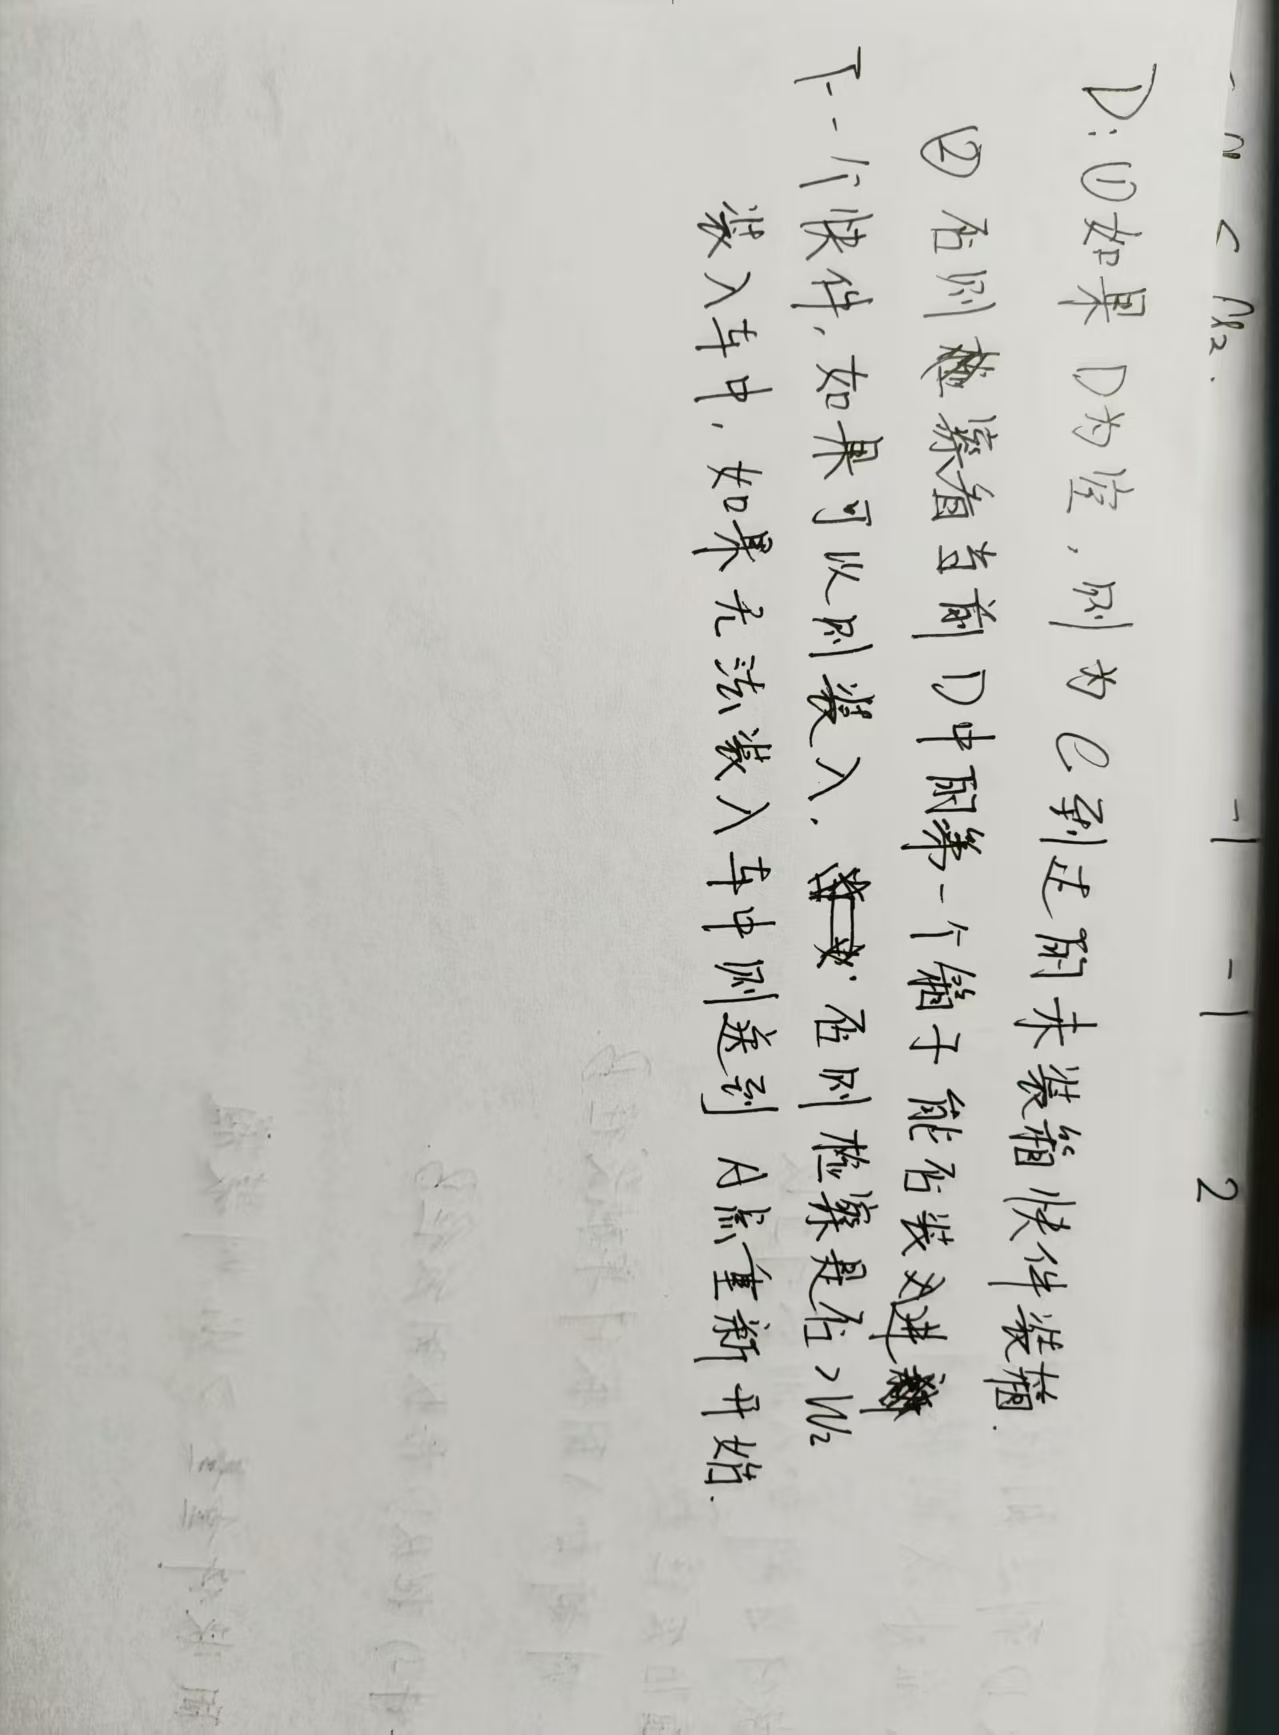 n < n2.
-1 -1 2
D:①如果D为空,则为C到达的未装箱快件装箱.
②否则检索看当前D中的第一个箱子能否装进
下一个快件,如果可以则装入.否则检察是否>W2
装入车中,如果无法装入车中则送到A点重新开始.